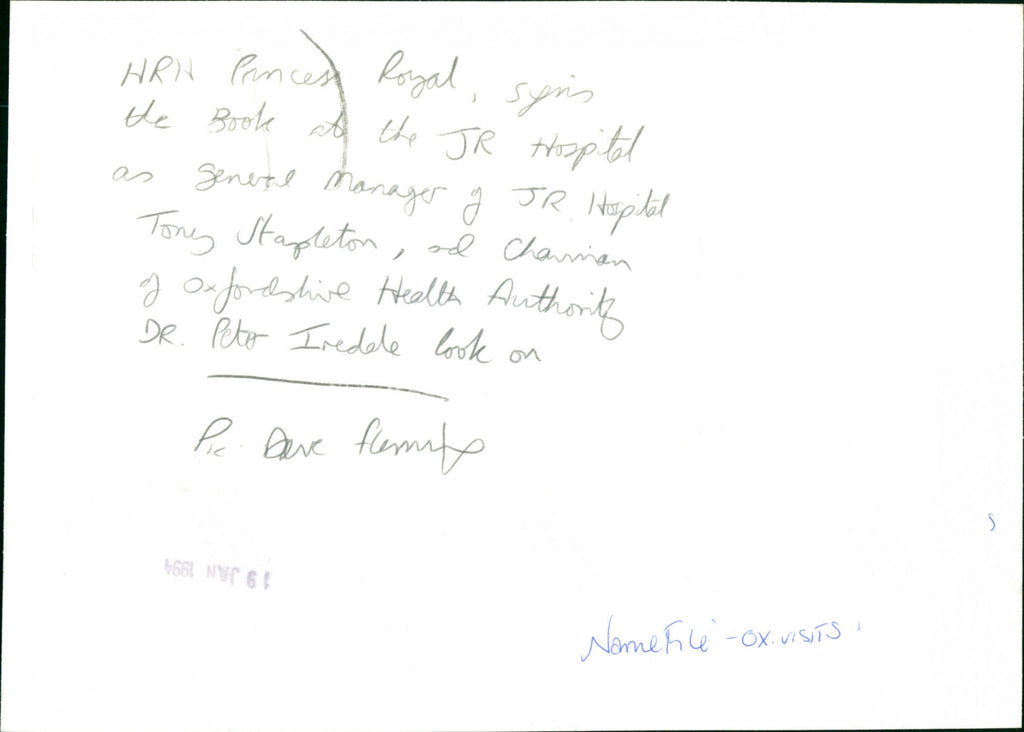 HRH Princess Royal, signs
the Book at the JR Hospital
as General Manager of JR Hospital
Tony Stapleton, and Chairman
of Oxfordshire Health Authority
DR. Peter Iredale look on
Pic. Dave Fleming
19 JAN 1994
Name File - OX. VISITS